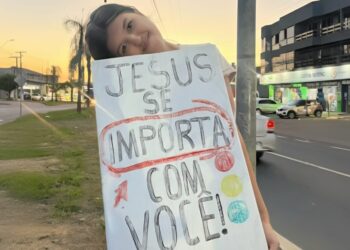 JESUS
SE
IMPORTA
COM
VOCÊ!